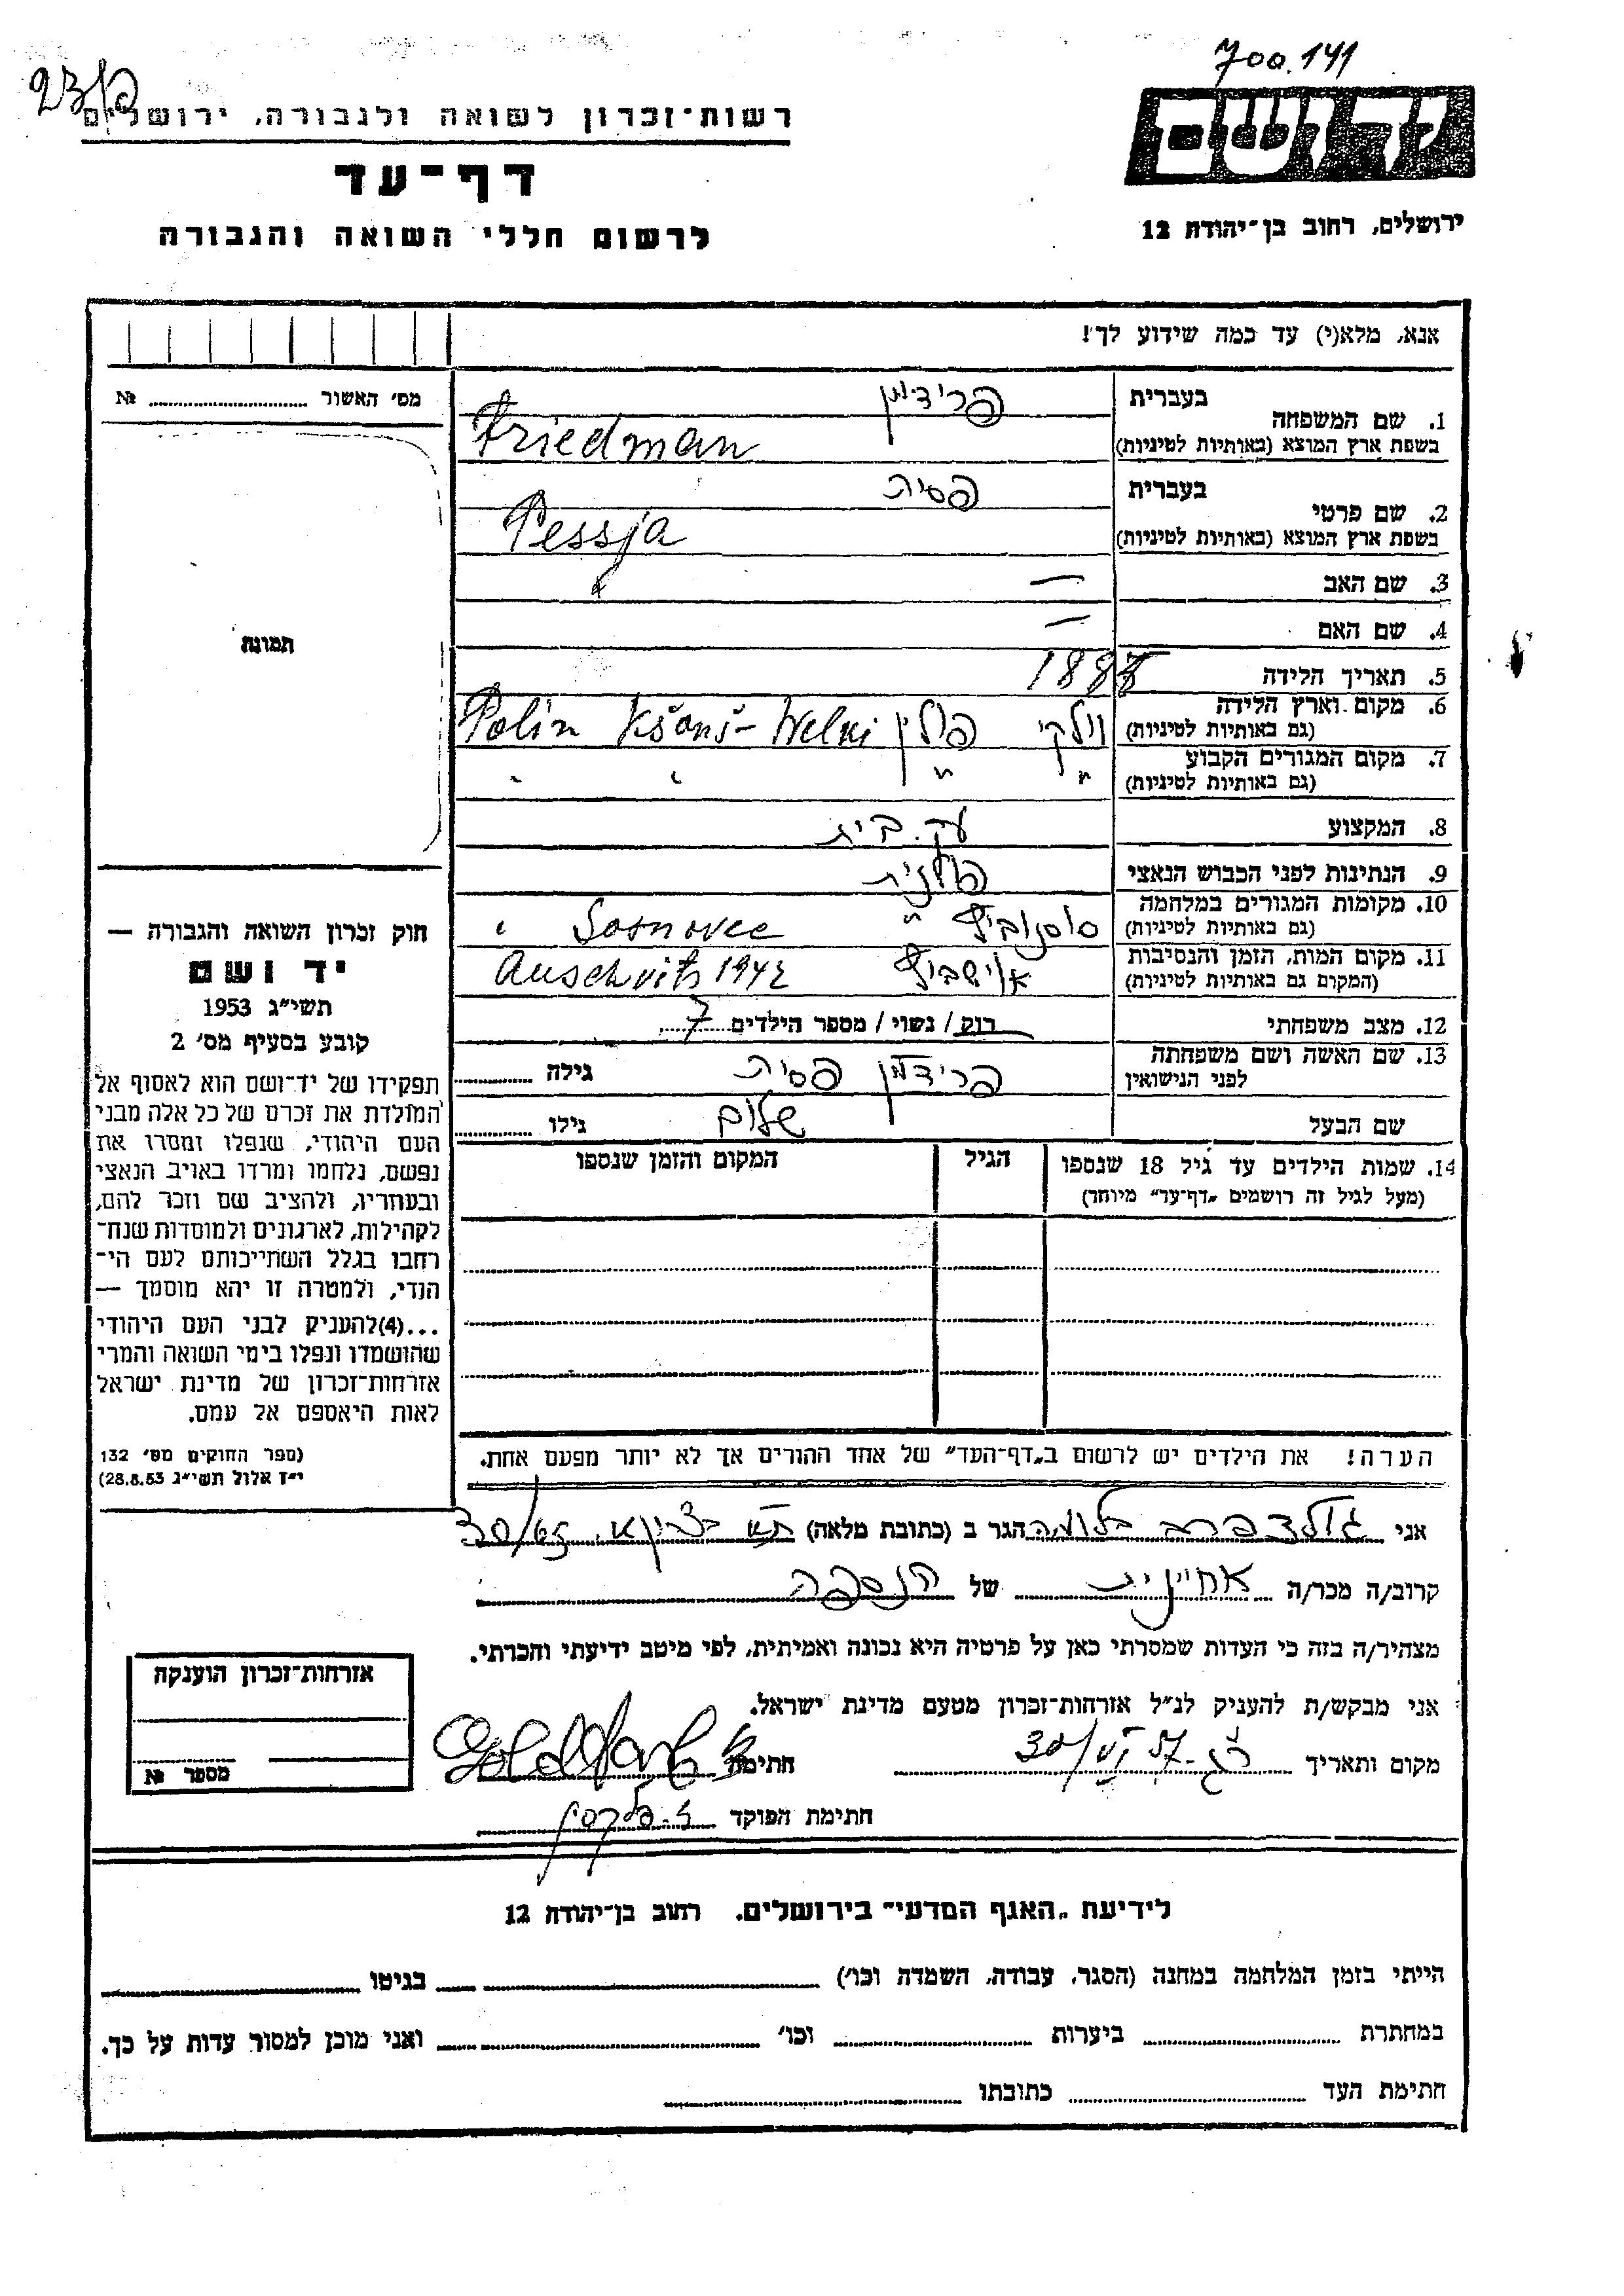 700.141
23/פ
רשות־זכרון לשואה ולגבורה, ירושלים
יד ושם
דף־עד
לרשום חללי השואה והגבורה
ירושלים, רחוב בן־יהודה 12
אנא, מלא(י) עד כמה שידוע לך!
מס׳ האשור № 
תמונה
בעברית פרידמן
1. שם המשפחה
בשפת ארץ המוצא (באותיות לטיניות) Friedman
בעברית פסית
2. שם פרטי
בשפת ארץ המוצא (באותיות לטיניות) Pessja
3. שם האב —
4. שם האם —
5. תאריך הלידה
6. מקום וארץ הלידה
(גם באותיות לטיניות) וולקי פולין Polin Kšonš-Welki
7. מקום המגורים הקבוע " "
(גם באותיות לטיניות)
8. המקצוע עק. בית
9. הנתינות לפני הכבוש הנאצי פולנית
10. מקומות המגורים במלחמה
(גם באותיות לטיניות) סוסנוביץ " Sosnovec "
11. מקום המות, הזמן והנסיבות
(המקום גם באותיות לטיניות) אושביץ Auschvits 1942
12. מצב משפחתי רוק / נשוי / מספר הילדים 7
13. שם האשה ושם משפחתה
לפני הנישואין פרידמן פסית גילה
שם הבעל שלום גילו
14. שמות הילדים עד גיל 18 שנספו הגיל המקום והזמן שנספו
(מעל לגיל זה רושמים „דף־עד״ מיוחד)
הערה! את הילדים יש לרשום ב„דף־העד״ של אחד ההורים אך לא יותר מפעם אחת.
חוק זכרון השואה והגבורה —
יד ושם
תשי״ג 1953
קובע בסעיף מס׳ 2
תפקידו של יד־ושם הוא לאסוף אל
המולדת את זכרם של כל אלה מבני
העם היהודי, שנפלו ומסרו את
נפשם, נלחמו ומרדו באויב הנאצי
ובעוזריו, ולהציב שם וזכר להם,
לקהילות, לארגונים ולמוסדות שנח־
רחבו בגלל השתייכותם לעם הי־
הודי, ולמטרה זו יהא מוסמך —
...(4)להעניק לבני העם היהודי
שהושמדו ונפלו בימי השואה והמרי
אזרחות־זכרון של מדינת ישראל
לאות היאספם אל עמם.
(ספר החוקים מס׳ 132
י״ז אלול תשי״ג 28.8.53)
אני גולדפרב בלומה הגר ב (כתובת מלאה)
קרוב/ה מכר/ה אחיינית של הנספה
מצהיר/ה בזה כי העדות שמסרתי כאן על פרטיה היא נכונה ואמיתית, לפי מיטב ידיעתי והכרתי.
אני מבקש/ת להעניק לנ״ל אזרחות־זכרון מטעם מדינת ישראל.
מקום ותאריך 30/VI 57 חתימה Goldfarb
חתימת הפוקד
אזרחות־זכרון הוענקה
מספר №
לידיעת „האגף המדעי״ בירושלים, רחוב בן־יהודה 12
הייתי בזמן המלחמה במחנה (הסגר, עבודה, השמדה וכו׳) בגיטו
במחתרת ביערות וכו׳ ואני מוכן למסור עדות על כך.
חתימת העד כתובתו